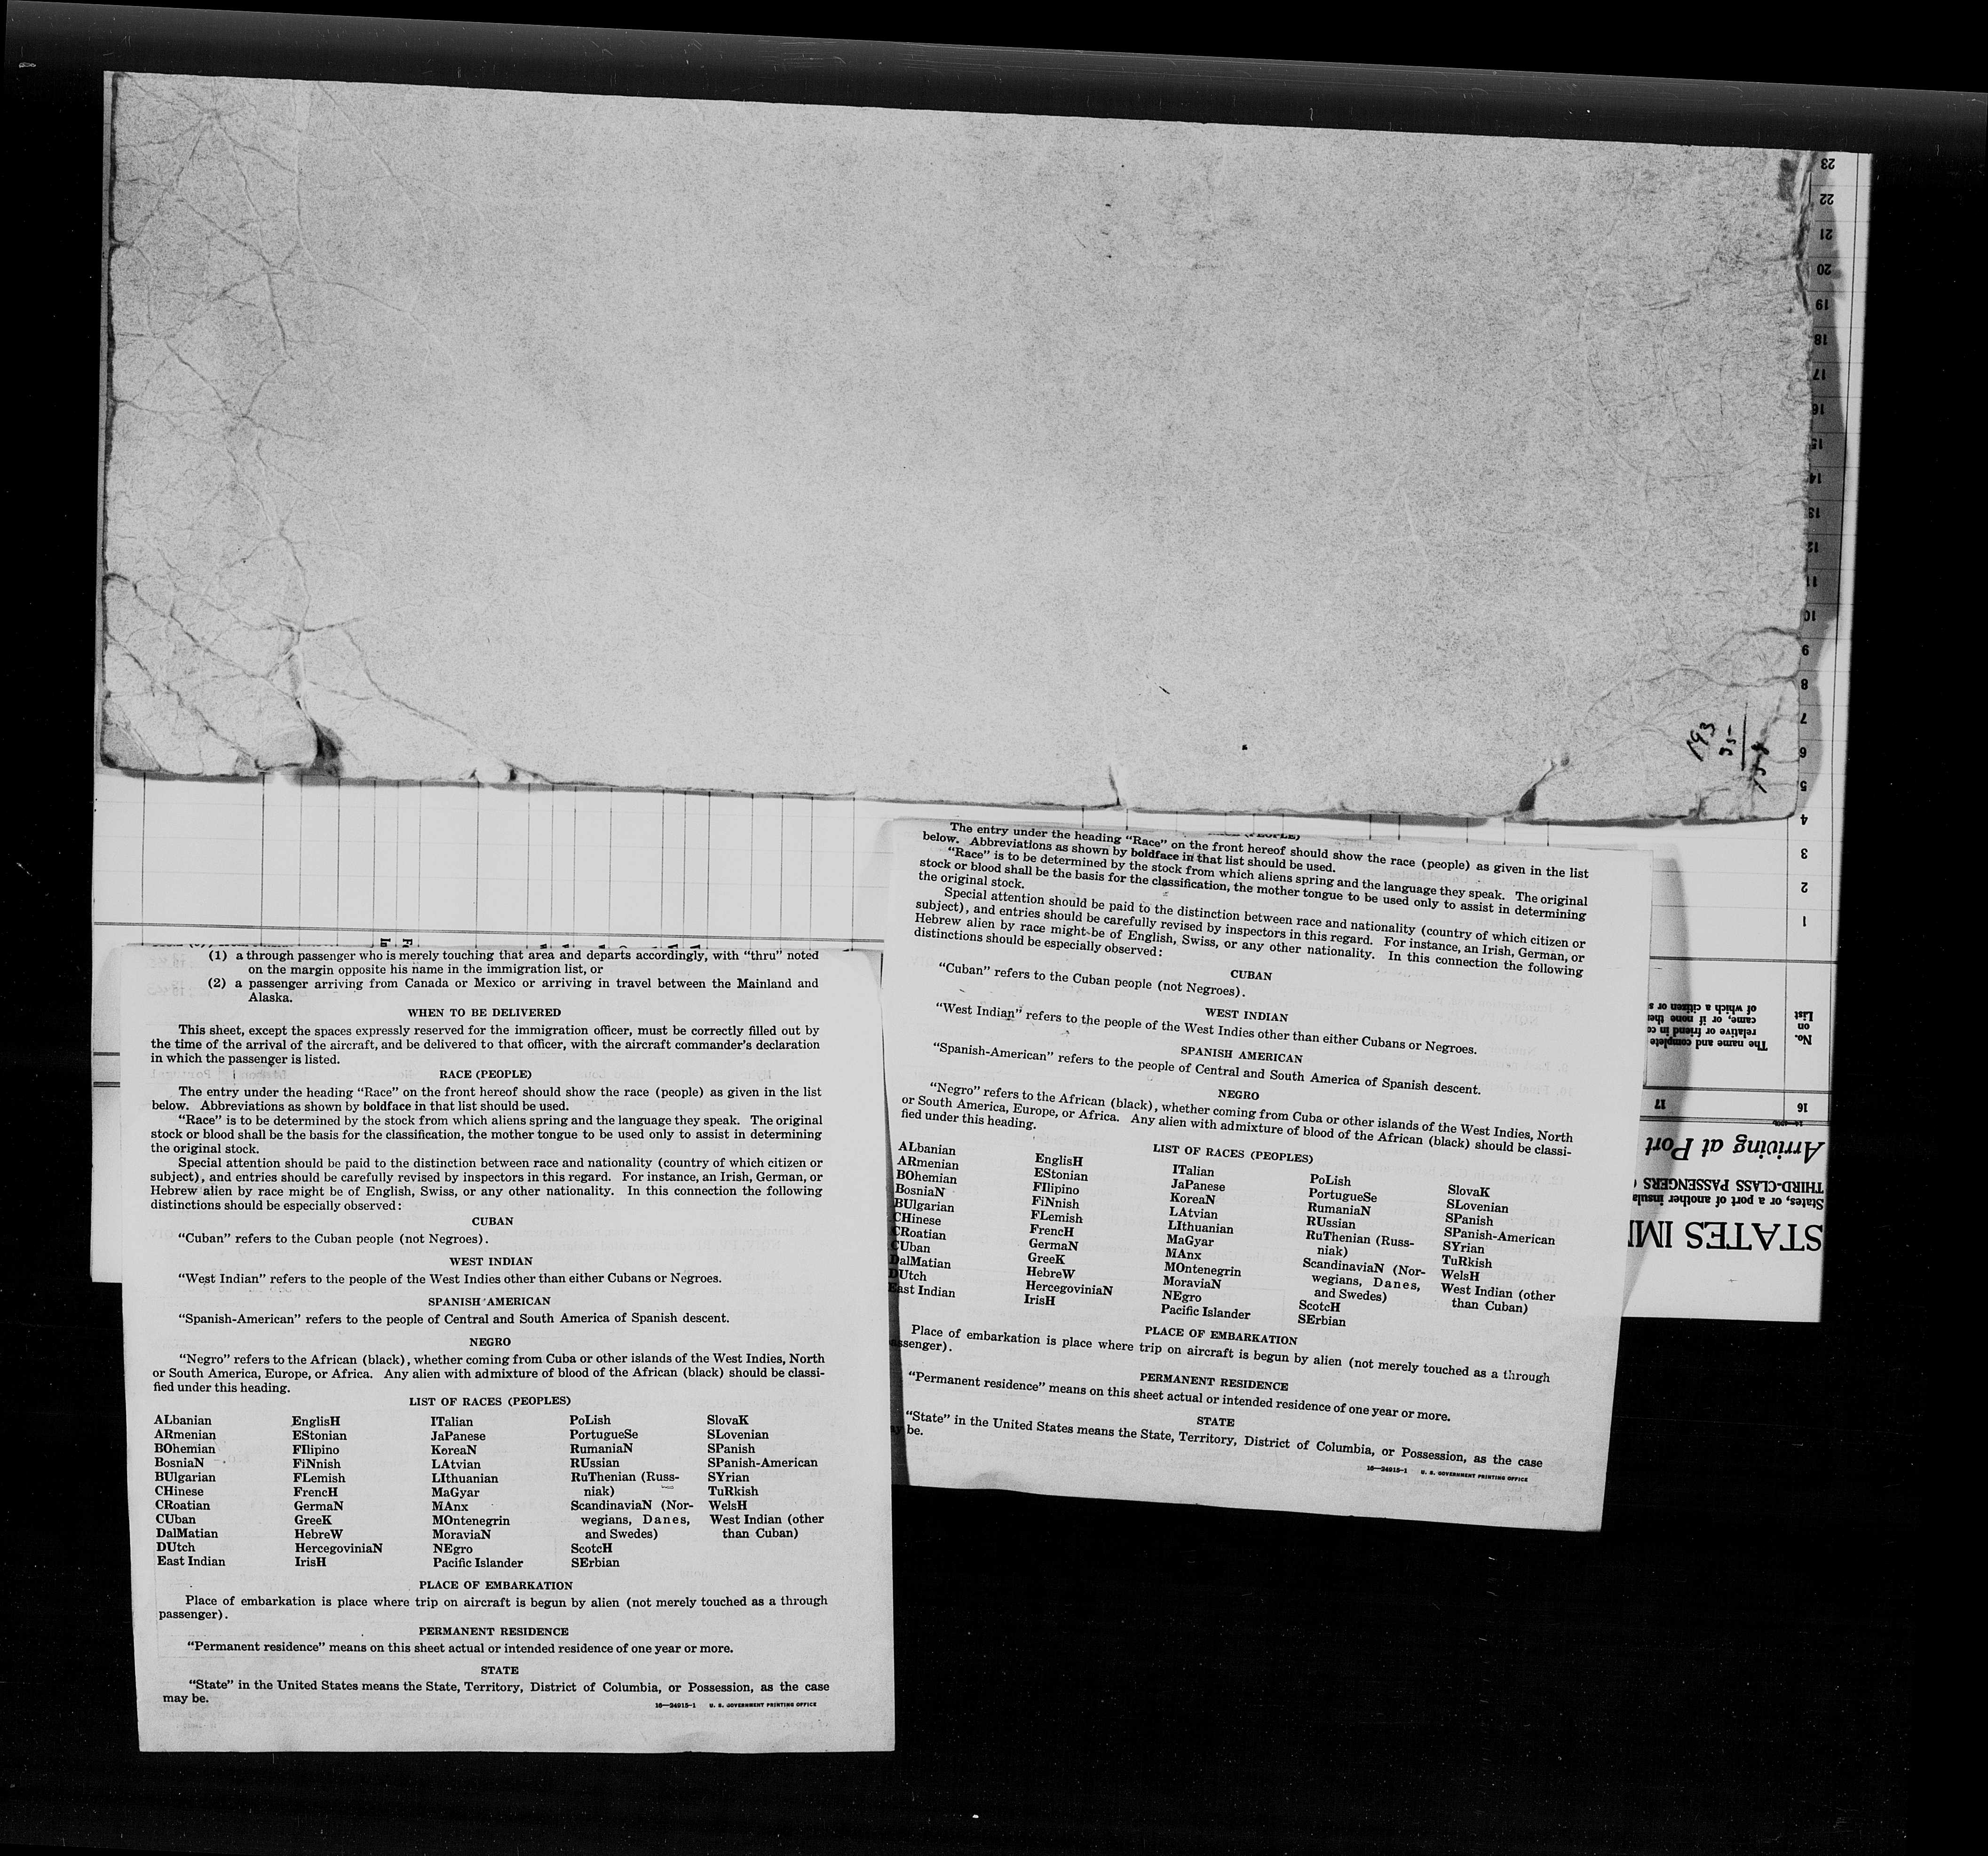 23
22
21
20
19
18
17
16
15
14
13
12
11
10
9
8
7
6
5
4
3
2
1
193
35
158
No.
on
List
The name and complete
relative or friend in co
came, or if none the
of which a citizen or s
16
17
Arriving at Port
THIRD-CLASS PASSENGERS
States, or a port of another insula
STATES IM
(1) a through passenger who is merely touching that area and departs accordingly, with “thru” noted
on the margin opposite his name in the immigration list, or
(2) a passenger arriving from Canada or Mexico or arriving in travel between the Mainland and
Alaska.
WHEN TO BE DELIVERED
This sheet, except the spaces expressly reserved for the immigration officer, must be correctly filled out by
the time of the arrival of the aircraft, and be delivered to that officer, with the aircraft commander’s declaration
in which the passenger is listed.
RACE (PEOPLE)
The entry under the heading “Race” on the front hereof should show the race (people) as given in the list
below. Abbreviations as shown by boldface in that list should be used.
“Race” is to be determined by the stock from which aliens spring and the language they speak. The original
stock or blood shall be the basis for the classification, the mother tongue to be used only to assist in determining
the original stock.
Special attention should be paid to the distinction between race and nationality (country of which citizen or
subject), and entries should be carefully revised by inspectors in this regard. For instance, an Irish, German, or
Hebrew alien by race might be of English, Swiss, or any other nationality. In this connection the following
distinctions should be especially observed:
CUBAN
“Cuban” refers to the Cuban people (not Negroes).
WEST INDIAN
“West Indian” refers to the people of the West Indies other than either Cubans or Negroes.
SPANISH AMERICAN
“Spanish-American” refers to the people of Central and South America of Spanish descent.
NEGRO
“Negro” refers to the African (black), whether coming from Cuba or other islands of the West Indies, North
or South America, Europe, or Africa. Any alien with admixture of blood of the African (black) should be classi-
fied under this heading.
LIST OF RACES (PEOPLES)
ALbanian EnglisH ITalian PoLish SlovaK
ARmenian EStonian JaPanese PortugueSe SLovenian
BOhemian FIlipino KoreaN RumaniaN SPanish
BosniaN FiNnish LAtvian RUssian SPanish-American
BUlgarian FLemish LIthuanian RuThenian (Russ- SYrian
CHinese FrencH MaGyar niak) TuRkish
CRoatian GermaN MAnx ScandinaviaN (Nor- WelsH
CUban GreeK MOntenegrin wegians, Danes, West Indian (other
DalMatian HebreW MoraviaN and Swedes) than Cuban)
DUtch HercegoviniaN NEgro ScotcH
East Indian IrisH Pacific Islander SErbian
PLACE OF EMBARKATION
Place of embarkation is place where trip on aircraft is begun by alien (not merely touched as a through
passenger).
PERMANENT RESIDENCE
“Permanent residence” means on this sheet actual or intended residence of one year or more.
STATE
“State” in the United States means the State, Territory, District of Columbia, or Possession, as the case
may be.
16—24915-1 U. S. GOVERNMENT PRINTING OFFICE
The entry under the heading “Race” on the front hereof should show the race (people) as given in the list
below. Abbreviations as shown by boldface in that list should be used.
“Race” is to be determined by the stock from which aliens spring and the language they speak. The original
stock or blood shall be the basis for the classification, the mother tongue to be used only to assist in determining
the original stock.
Special attention should be paid to the distinction between race and nationality (country of which citizen or
subject), and entries should be carefully revised by inspectors in this regard. For instance, an Irish, German, or
Hebrew alien by race might be of English, Swiss, or any other nationality. In this connection the following
distinctions should be especially observed:
CUBAN
“Cuban” refers to the Cuban people (not Negroes).
WEST INDIAN
“West Indian” refers to the people of the West Indies other than either Cubans or Negroes.
SPANISH AMERICAN
“Spanish-American” refers to the people of Central and South America of Spanish descent.
NEGRO
“Negro” refers to the African (black), whether coming from Cuba or other islands of the West Indies, North
or South America, Europe, or Africa. Any alien with admixture of blood of the African (black) should be classi-
fied under this heading.
LIST OF RACES (PEOPLES)
ALbanian EnglisH ITalian PoLish SlovaK
ARmenian EStonian JaPanese PortugueSe SLovenian
BOhemian FIlipino KoreaN RumaniaN SPanish
BosniaN FiNnish LAtvian RUssian SPanish-American
BUlgarian FLemish LIthuanian RuThenian (Russ- SYrian
CHinese FrencH MaGyar niak) TuRkish
CRoatian GermaN MAnx ScandinaviaN (Nor- WelsH
CUban GreeK MOntenegrin wegians, Danes, West Indian (other
DalMatian HebreW MoraviaN and Swedes) than Cuban)
DUtch HercegoviniaN NEgro ScotcH
East Indian IrisH Pacific Islander SErbian
PLACE OF EMBARKATION
Place of embarkation is place where trip on aircraft is begun by alien (not merely touched as a through
ssenger).
PERMANENT RESIDENCE
“Permanent residence” means on this sheet actual or intended residence of one year or more.
STATE
“State” in the United States means the State, Territory, District of Columbia, or Possession, as the case
be.
16—24915-1 U. S. GOVERNMENT PRINTING OFFICE